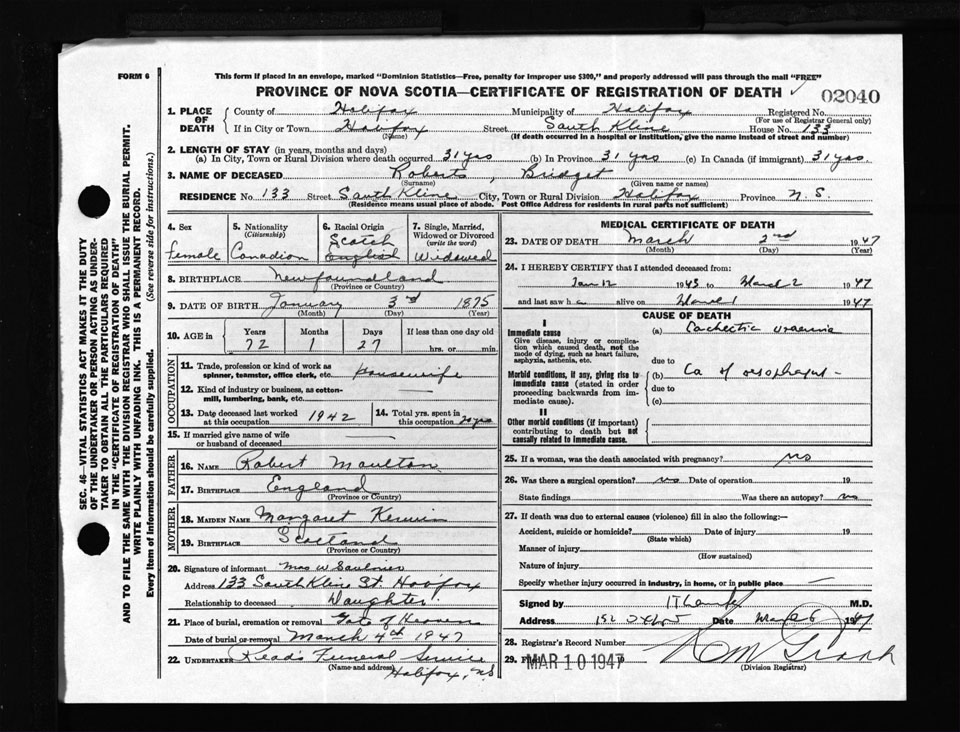 FORM 6
This form if placed in an envelope, marked "Dominion Statistics—Free, penalty for improper use $300," and properly addressed will pass through the mail "FREE"
PROVINCE OF NOVA SCOTIA—CERTIFICATE OF REGISTRATION OF DEATH
02040
SEC. 46—VITAL STATISTICS ACT MAKES IT THE DUTY
OF THE UNDERTAKER OR PERSON ACTING AS UNDER-
TAKER TO OBTAIN ALL THE PARTICULARS REQUIRED
IN THE "CERTIFICATE OF REGISTRATION OF DEATH"
AND TO FILE THE SAME WITH THE DIVISION REGISTRAR WHO SHALL ISSUE THE BURIAL PERMIT.
WRITE PLAINLY WITH UNFADING INK. THIS IS A PERMANENT RECORD.
Every item of information should be carefully supplied. (See reverse side for instructions.)
1. PLACE OF DEATH County of Halifax Municipality of Halifax Registered No.
(For use of Registrar General only)
If in City or Town Halifax Street South Kline House No. 133
(Name) (If death occurred in a hospital or institution, give the name instead of street and number)
2. LENGTH OF STAY (in years, months and days)
(a) In City, Town or Rural Division where death occurred 31 yrs (b) In Province 31 yrs (c) In Canada (if immigrant) 31 yrs.
3. NAME OF DECEASED Roberts, Bridget
(Surname) (Given name or names)
RESIDENCE No. 133 Street South Kline City, Town or Rural Division Halifax Province N.S.
(Residence means usual place of abode. Post Office Address for residents in rural parts not sufficient)
4. Sex 5. Nationality (Citizenship) 6. Racial Origin 7. Single, Married, Widowed or Divorced (write the word)
Female Canadian Scotch English Widowed
8. BIRTHPLACE Newfoundland
(Province or Country)
9. DATE OF BIRTH January 3rd 1875
(Month) (Day) (Year)
10. AGE in Years Months Days If less than one day old
72 1 27 hrs. or min.
OCCUPATION
11. Trade, profession or kind of work as spinner, teamster, office clerk, etc. Housewife
12. Kind of industry or business, as cotton-mill, lumbering, bank, etc.
13. Date deceased last worked at this occupation 1942 14. Total yrs. spent in this occupation
15. If married give name of wife or husband of deceased
FATHER
16. NAME Robert Moulton
17. BIRTHPLACE England
(Province or Country)
MOTHER
18. MAIDEN NAME Margaret Kerwin
19. BIRTHPLACE Scotland
(Province or Country)
20. Signature of informant Mrs W Saulnier
Address 133 South Kline St. Halifax
Relationship to deceased Daughter
21. Place of burial, cremation or removal Gate of Heaven
Date of burial or removal March 4th 1947
22. UNDERTAKER Read's Funeral Service
(Name and address) Halifax, N.S.
MEDICAL CERTIFICATE OF DEATH
23. DATE OF DEATH March 2nd 1947
(Month) (Day) (Year)
24. I HEREBY CERTIFY that I attended deceased from:
Jan 12 1943 to March 2 1947
and last saw h alive on March 1 1947
CAUSE OF DEATH
I
Immediate cause (a) Cachectic uraemia
Give disease, injury or complication which caused death, not the mode of dying, such as heart failure, asphyxia, asthenia, etc.
due to
Morbid conditions, if any, giving rise to immediate cause (stated in order proceeding backwards from immediate cause). (b) Ca of oesophagus
due to
(c)
II
Other morbid conditions (if important) contributing to death but not causally related to immediate cause.
25. If a woman, was the death associated with pregnancy? no
26. Was there a surgical operation? no Date of operation 19
State findings Was there an autopsy? no
27. If death was due to external causes (violence) fill in also the following:—
Accident, suicide or homicide? Date of injury 19
(State which)
Manner of injury
(How sustained)
Nature of injury
Specify whether injury occurred in industry, in home, or in public place —
Signed by M.D.
Address 152 Date March 6 1947
28. Registrar's Record Number
29. Filed MAR 10 1947
(Division Registrar)